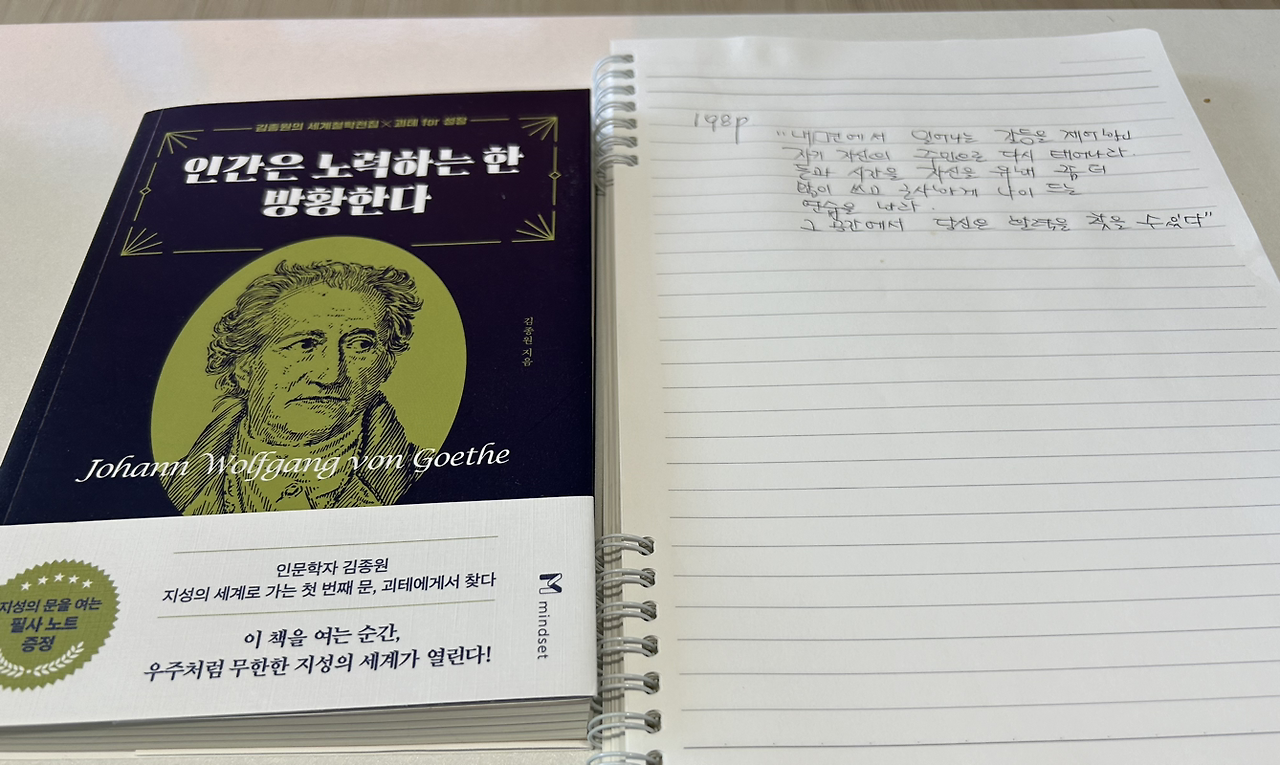 김종원의 세계철학전집 × 괴테 for 성장
인간은 노력하는 한
방황한다
김종원 지음
Johann Wolfgang von Goethe
인문학자 김종원
지성의 세계로 가는 첫 번째 문, 괴테에게서 찾다
이 책을 여는 순간,
우주처럼 무한한 지성의 세계가 열린다!
mindset
지성의 문을 여는
필사 노트
증정
198p
"내면에서 일어나는 갈등을 제어하고
자기 자신의 주인으로 다시 태어나라.
돈과 시간을 자신을 위해 좀 더
많이 쓰고 근사하게 나이 드는
연습을 하라.
그 공간에서 당신은 방법을 찾을 수 있다"